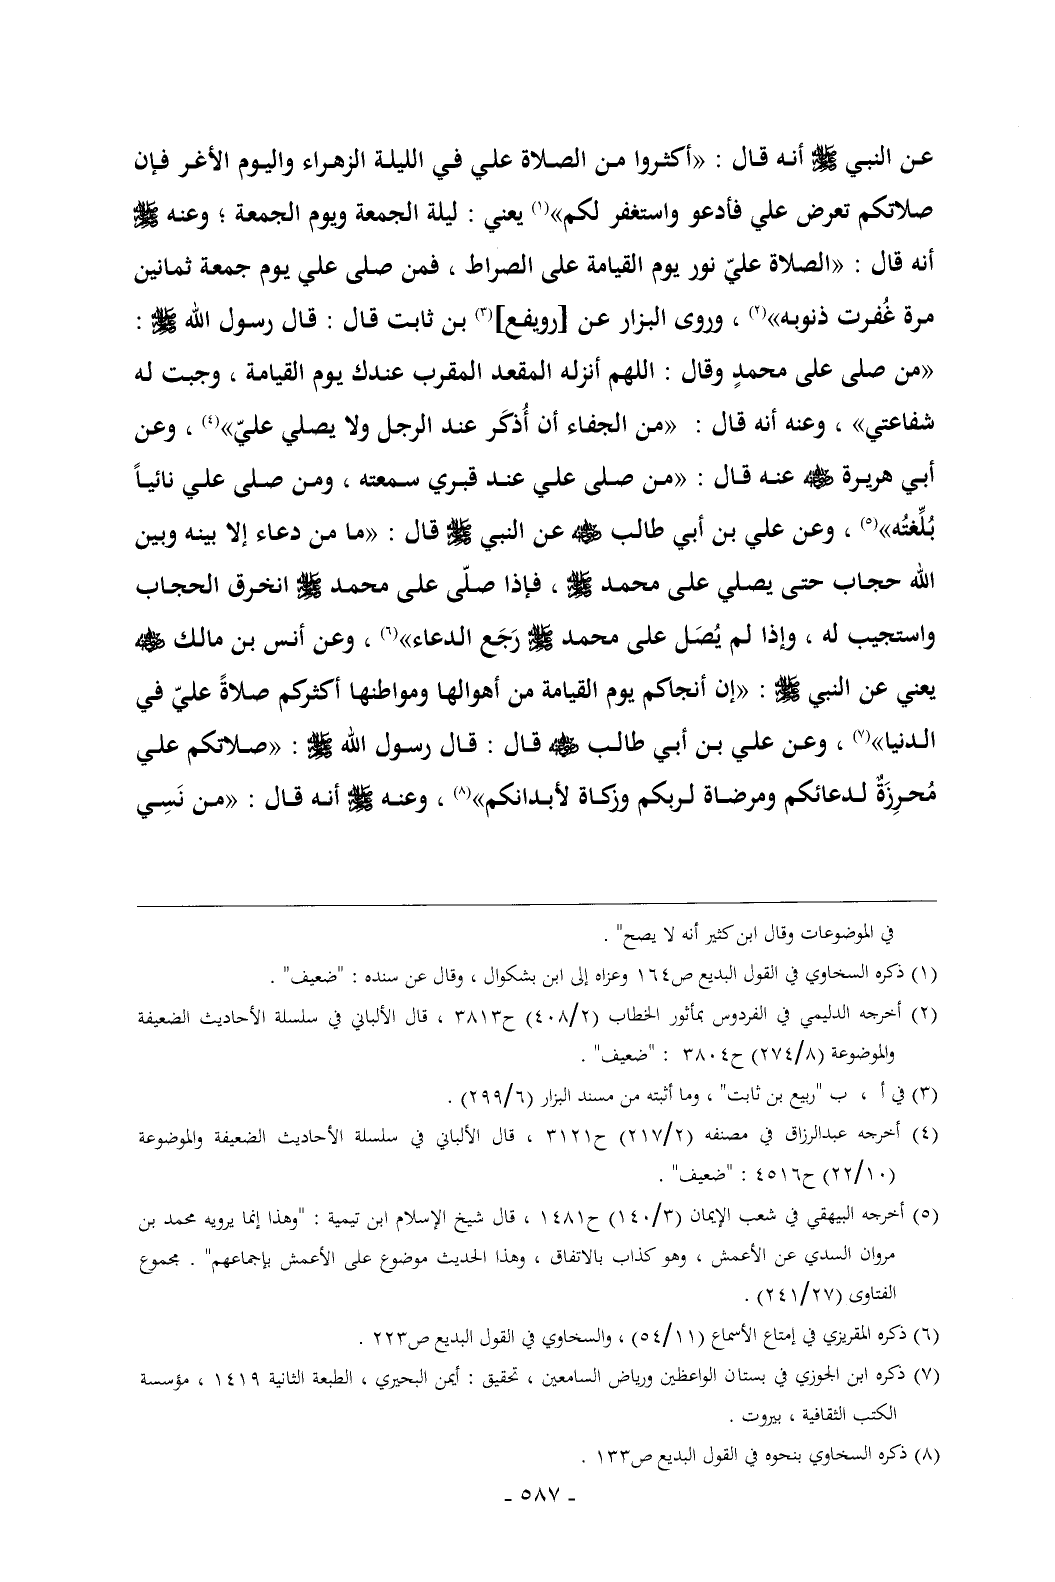 عن النبي ﷺ أنه قال : «أكثروا من الصلاة علي في الليلة الزهراء واليوم الأغر فإن
صلاتكم تعرض علي فأدعو واستغفر لكم»(١) يعني : ليلة الجمعة ويوم الجمعة ؛ وعنه ﷺ
أنه قال : «الصلاة عليّ نور يوم القيامة على الصراط ، فمن صلى علي يوم جمعة ثمانين
مرة غُفرت ذنوبه»(٢) ، وروى البزار عن [رويفع](٣) بن ثابت قال : قال رسول الله ﷺ :
«من صلى على محمدٍ وقال : اللهم أنزله المقعد المقرب عندك يوم القيامة ، وجبت له
شفاعتي» ، وعنه أنه قال : «من الجفاء أن أُذكَر عند الرجل ولا يصلي عليّ»(٤) ، وعن
أبي هريرة ﵁ عنه قال : «من صلى علي عند قبري سمعته ، ومن صلى علي نائياً
بُلِّغتُه»(٥) ، وعن علي بن أبي طالب ﵁ عن النبي ﷺ قال : «ما من دعاء إلا بينه وبين
الله حجاب حتى يصلي على محمد ﷺ ، فإذا صلّى على محمد ﷺ انخرق الحجاب
واستجيب له ، وإذا لم يُصَل على محمد ﷺ رَجَع الدعاء»(٦) ، وعن أنس بن مالك ﵁
يعني عن النبي ﷺ : «إن أنجاكم يوم القيامة من أهوالها ومواطنها أكثركم صلاةً عليّ في
الدنيا»(٧) ، وعن علي بن أبي طالب ﵁ قال : قال رسول الله ﷺ : «صلاتكم علي
مُحرِزَةٌ لدعائكم ومرضاة لربكم وزكاة لأبدانكم»(٨) ، وعنه ﷺ أنه قال : «من نَسِي
في الموضوعات وقال ابن كثير أنه لا يصح" .
(١) ذكره السخاوي في القول البديع ص١٦٤ وعزاه إلى ابن بشكوال ، وقال عن سنده : "ضعيف" .
(٢) أخرجه الدليمي في الفردوس بمأثور الخطاب (٤٠٨/٢) ح٣٨١٣ ، قال الألباني في سلسلة الأحاديث الضعيفة
والموضوعة (٢٧٤/٨) ح٣٨٠٤ : "ضعيف" .
(٣) في أ ، ب "ربيع بن ثابت" ، وما أثبته من مسند البزار (٢٩٩/٦) .
(٤) أخرجه عبدالرزاق في مصنفه (٢١٧/٢) ح٣١٢١ ، قال الألباني في سلسلة الأحاديث الضعيفة والموضوعة
(٢٢/١٠) ح٤٥١٦ : "ضعيف" .
(٥) أخرجه البيهقي في شعب الإيمان (١٤٠/٣) ح١٤٨١ ، قال شيخ الإسلام ابن تيمية : "وهذا إنما يرويه محمد بن
مروان السدي عن الأعمش ، وهو كذاب بالاتفاق ، وهذا الحديث موضوع على الأعمش بإجماعهم" . مجموع
الفتاوى (٢٤١/٢٧) .
(٦) ذكره المقريزي في إمتاع الأسماع (٥٤/١١) ، والسخاوي في القول البديع ص٢٢٣ .
(٧) ذكره ابن الجوزي في بستان الواعظين ورياض السامعين ، تحقيق : أيمن البحيري ، الطبعة الثانية ١٤١٩ ، مؤسسة
الكتب الثقافية ، بيروت .
(٨) ذكره السخاوي بنحوه في القول البديع ص١٣٣ .
- ٥٨٧ -